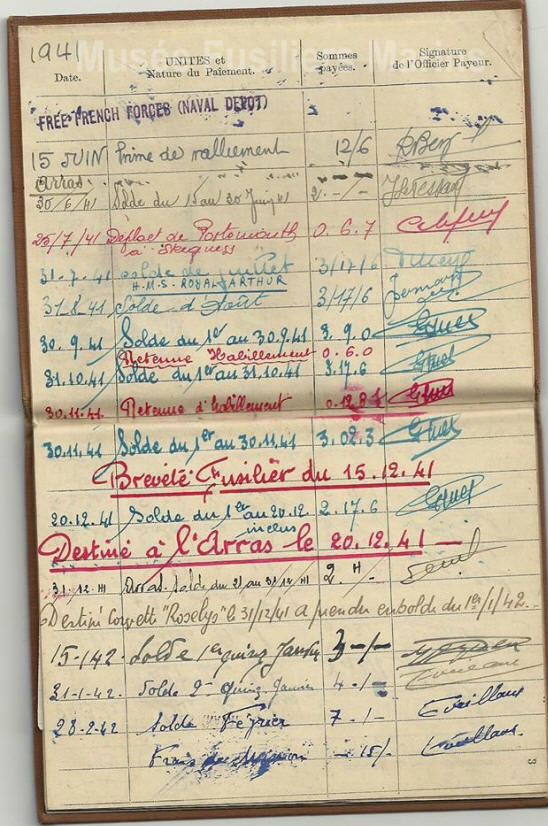 Musée Fusiliers Marins
1941
Date.
UNITES et
Nature du Paiement.
Sommes
payées.
Signature
de l'Officier Payeur.
FREE FRENCH FORCES (NAVAL DEPOT)
15 JUIN Prime de ralliement 12/6
Arras
30/6/41 Solde du 15 au 30 Juin 41 2.-/-
25/7/41 Déplact de Portsmouth 0.6.7
à Skegness
31-7-41 solde de juillet 3/17/6
H.M.S-ROYAL ARTHUR
31.8.41 Solde d'Août 3/17/6
30.9.41 Solde du 1er au 30.9.41 9.0
Retenue Habillement 0.6.0
31.10.41 Solde du 1er au 31.10.41 3.17.6
30.11.41 Retenue d'habillement 0.12.8
30.11.41 Solde du 1er au 30.11.41 3.02.3
Breveté Fusilier du 15.12.41
20.12.41 Solde du 1er au 20.12. 2.17.6
inclus
Destiné à l'Arras le 20.12.41-
31.12.41 Arras. Solde du 21 au 31/12/41 2
Destiné Corvette "Roselys" le 31/12/41 a prendre en solde du 1er/1/42.
15-1-42. Solde 1er quinz. Janvier 3-/-
31-1-42. Solde 2e Quinz. Janvier 4-/-
28-2-42 Solde Février 7-/-
Frais de -15/-
3